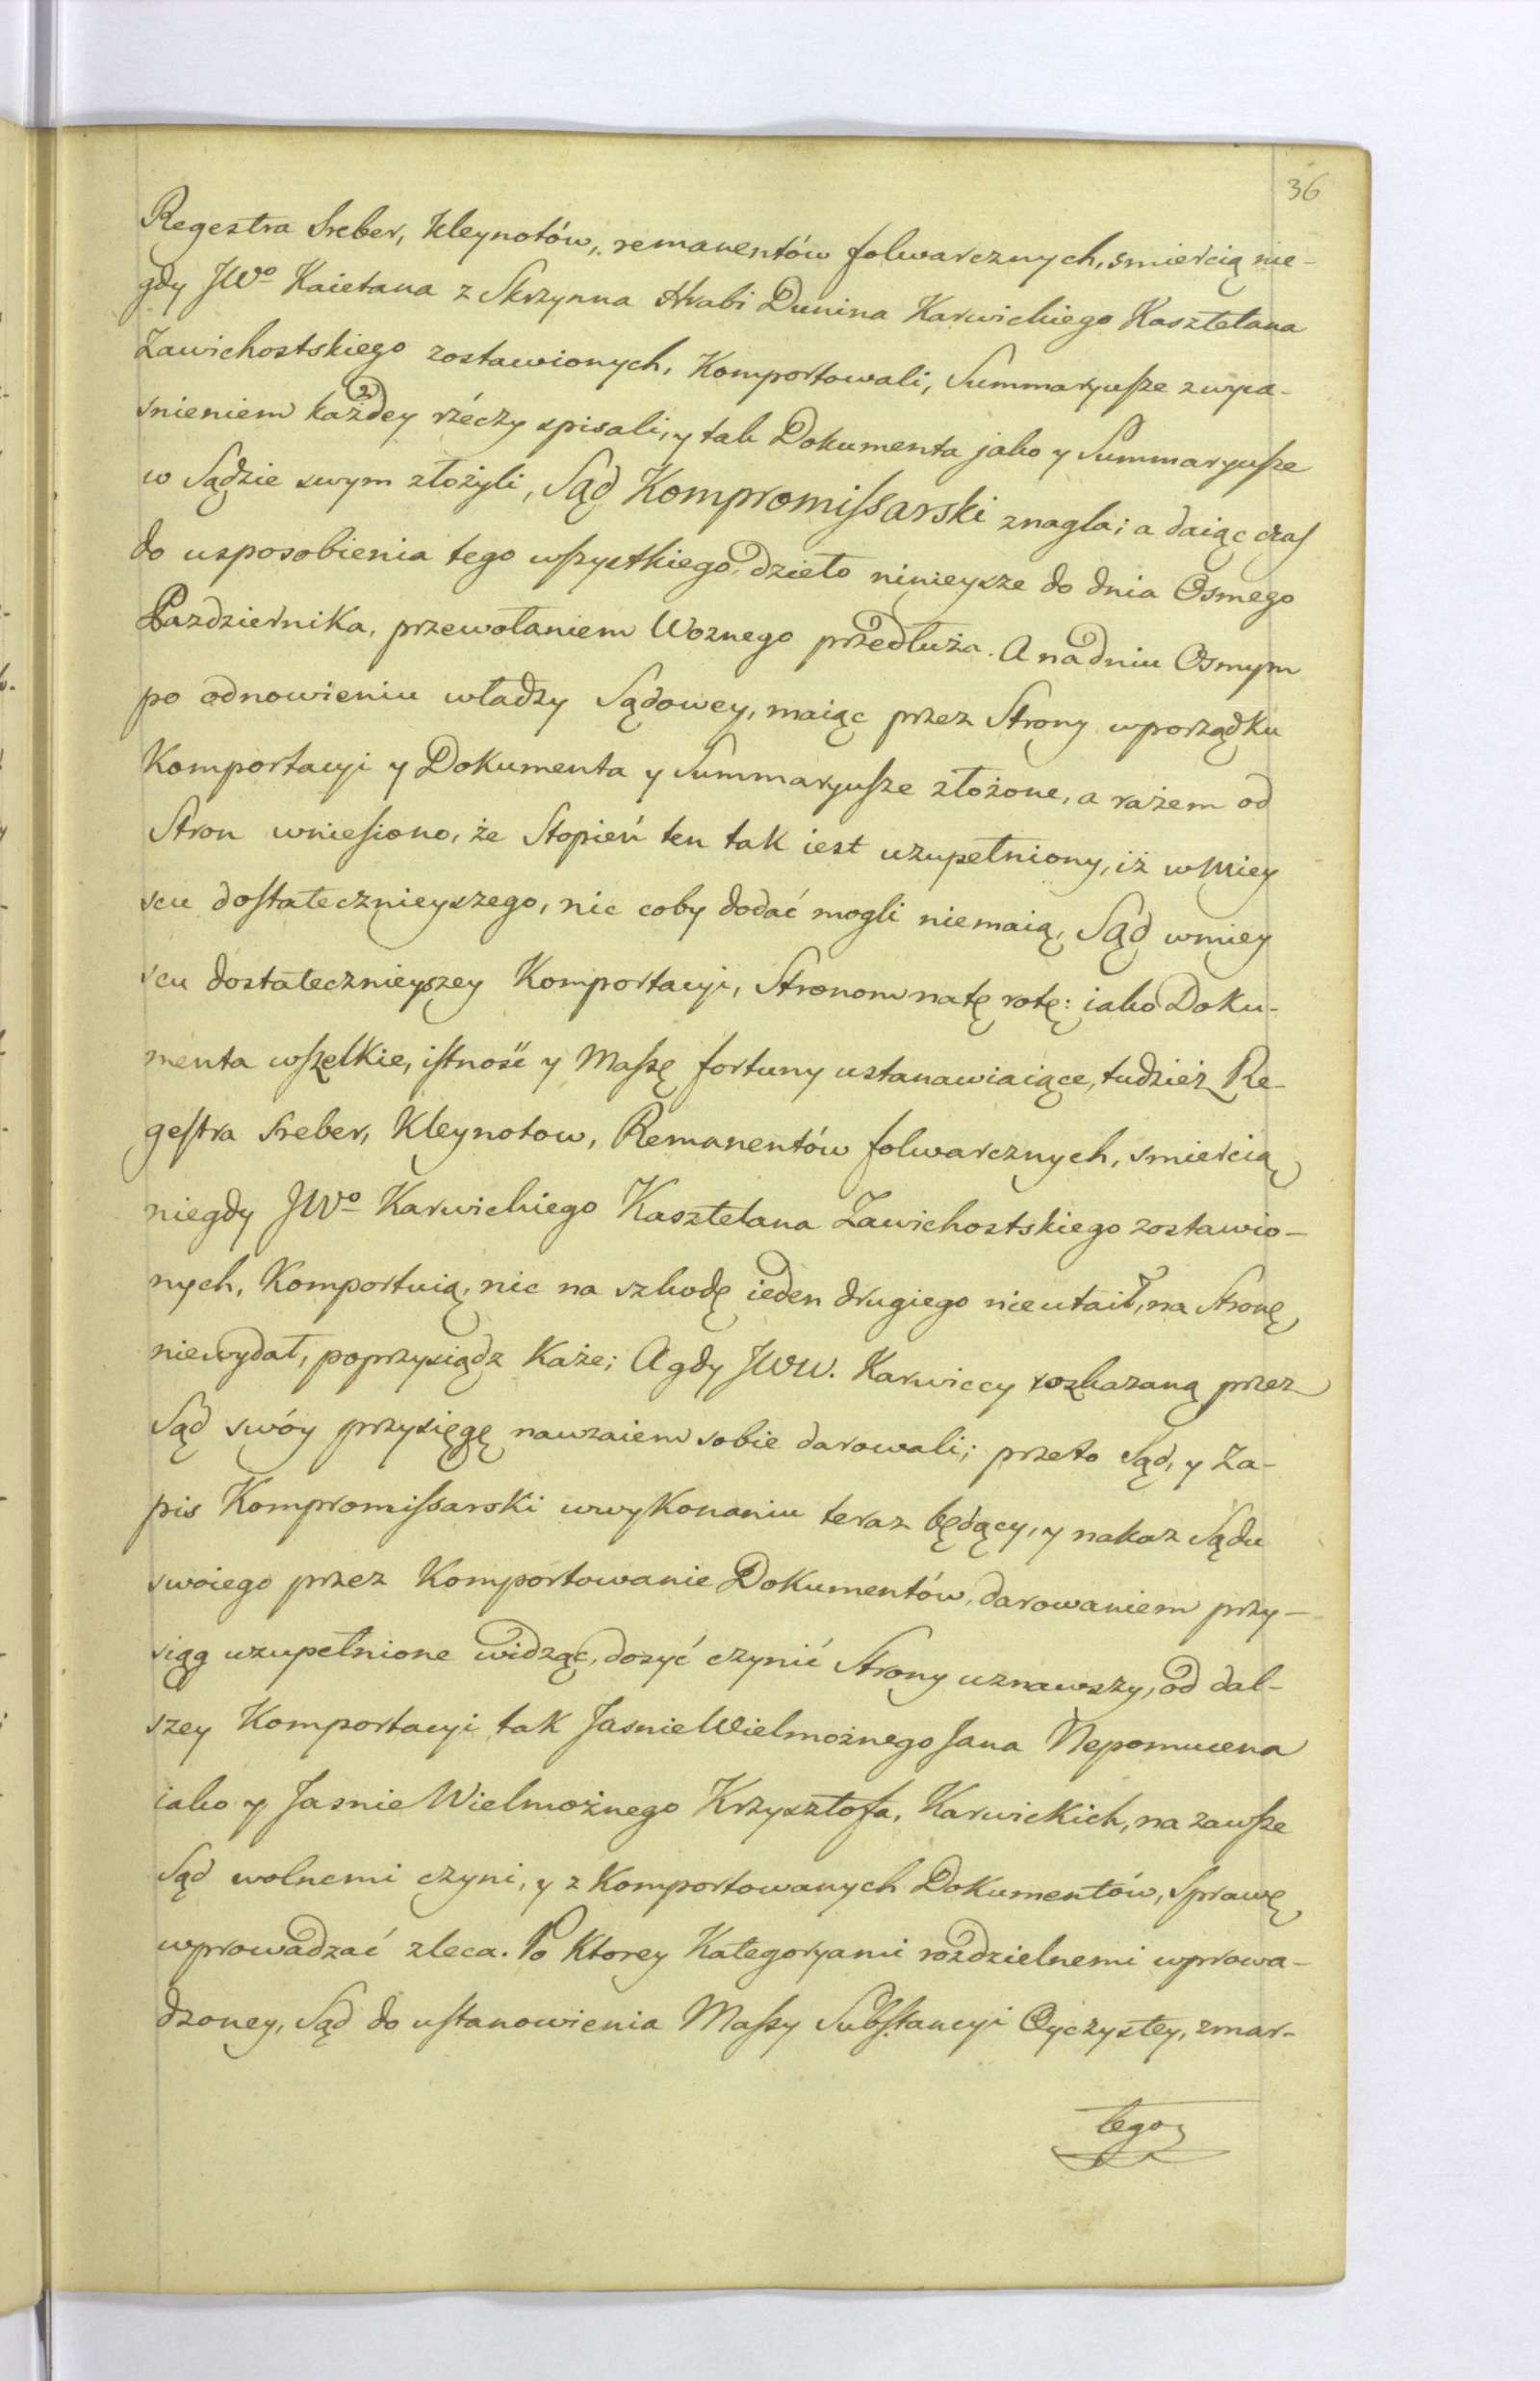 36
Regestra Sreber, Kleynotów, remanentów folwarcznych, smiercią nie-
gdy JWº Kaietana z Skrzynna Hrabi Dunina Karwickiego Kasztelana
Zawichostskiego zostawionych, Komportowali, Summaryusze zwyia-
snieniem każdey rzéczy spisali, y tak Dokumenta jako y Summaryusze
w Sądzie swym złożyli, Sąd Kompromissarski znagla; a daiąc czas
do usposobienia tego wszystkiego, dzieło ninieysze do dnia Osmego
Pazdziernika, przewołaniem Woznego przedłuża. A na dniu Osmym
po odnowieniu władzy Sądowey, maiąc przez Strony wporządku
Komportacyi y Dokumenta y Summaryusze złożone, a rażem od
Stron wniesiono, że Stopień ten tak iest uzupełniony, iż wMiey
scu dostatecznieyszego, nic coby dodać mogli niemaią, Sąd wmiey
scu dostatecznieyszey Komportacyi, Stronom natę rotę: iako Doku-
menta wszelkie, istność y Massę fortuny ustanawiaiące, tudzież Re-
gestra Sreber, Kleynotow, Remanentów folwarcznych, smiercią
niegdy JWº Karwickiego Kasztelana Zawichostskiego zostawio-
nych, Komportuią, nic na szkodę ieden drugiego nieutaił, na Stronę
niewydał, poprzysiądz Każe; A gdy JWW. Karwiccy rozkazaną przez
Sąd swóy przysięgę nawzaiem sobie darowali; przeto Sąd, y Za-
pis Kompromissarski wwykonaniu teraz będący, y nakaz Sądu
swoiego przez Komportowanie Dokumentów, darowaniem przy-
siąg uzupełnione widząc, dosyć czynić Strony uznawszy, od dal-
szey Komportacyi tak JasnieWielmożnego Jana Nepomucena
iako y Jasnie Wielmożnego Krzysztofa, Karwickich, na zawsze
Sąd wolnemi czyni, y z Komportowanych Dokumentów, Sprawę
wprowadzać zleca. Po Ktorey Kategoryami rozdzielnemi wprowa-
dzoney, Sąd do ustanowienia Massy Substancyi Oyczystey, zmar-
łego